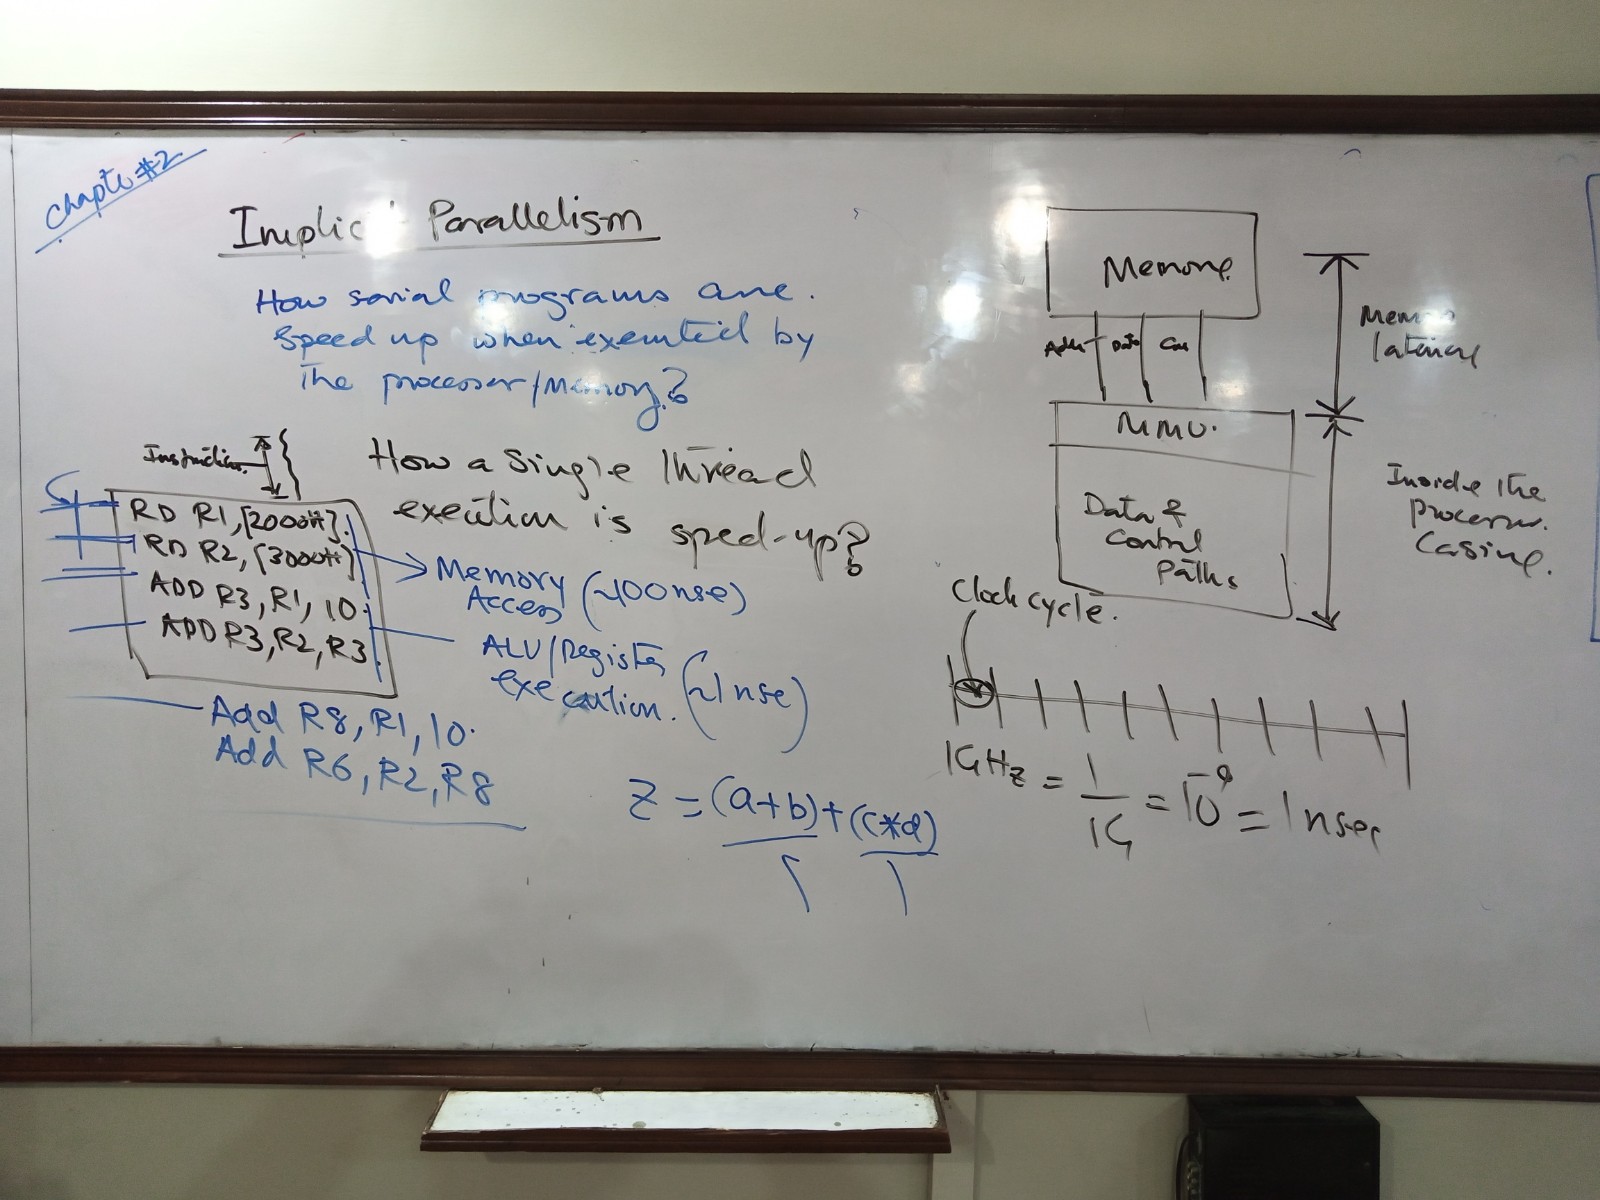 Chapter #2
Implicit Parallelism
How serial programs are.
Speed up when executed by
The processor/Memory?
Instruction
How a Single Thread
execution is sped-up?
RD R1, [2000H].
RD R2, [3000H]
ADD R3, R1, 10.
ADD R3, R2, R3
Memory
Access (~100nse)
ALU/Register
execution. (~1 nse)
Add R8, R1, 10.
Add R6, R2, R8
Z = (a+b)+(c*d)
Memory
Addr Data Con
MMU.
Data &
Control
Paths
Memory
latency
Inside the
processor
Casing.
Clock cycle.
1GHz = 1/1G = 10^-9 = 1 nsec